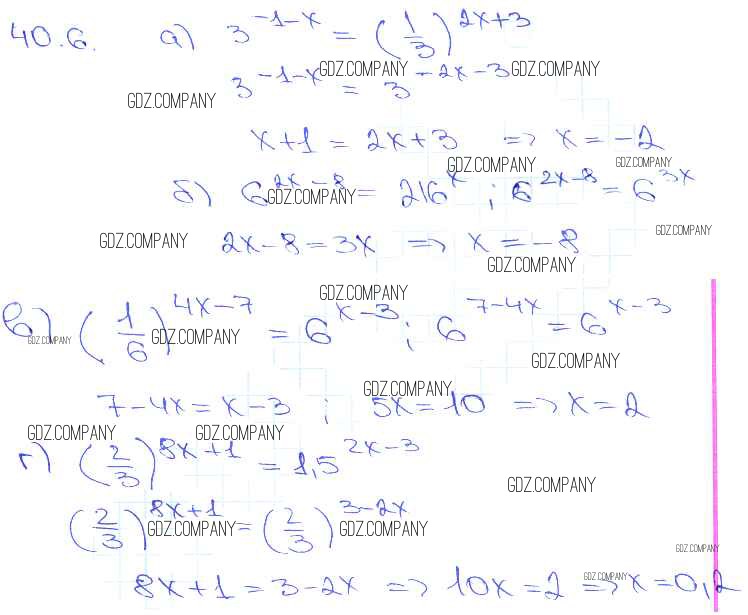 40.6. а) 3^{-1-x} = (1/3)^{2x+3}
3^{-1-x} = 3^{-2x-3}
GDZ.COMPANY GDZ.COMPANY
GDZ.COMPANY
x+1 = 2x+3 => x = -2
GDZ.COMPANY GDZ.COMPANY
б) 6^{2x-8} = 216^x ; 6^{2x-8} = 6^{3x}
GDZ.COMPANY
GDZ.COMPANY 2x-8 = 3x => x = -8 GDZ.COMPANY
GDZ.COMPANY
GDZ.COMPANY
в) (1/6)^{4x-7} = 6^{x-3} ; 6^{7-4x} = 6^{x-3}
GDZ.COMPANY GDZ.COMPANY
GDZ.COMPANY
GDZ.COMPANY
7-4x = x-3 ; 5x = 10 => x = 2
GDZ.COMPANY GDZ.COMPANY
г) (2/3)^{8x+1} = 1,5^{2x-3}
GDZ.COMPANY
(2/3)^{8x+1} = (2/3)^{3-2x}
GDZ.COMPANY GDZ.COMPANY
GDZ.COMPANY
8x+1 = 3-2x => 10x = 2 => x = 0,2
GDZ.COMPANY